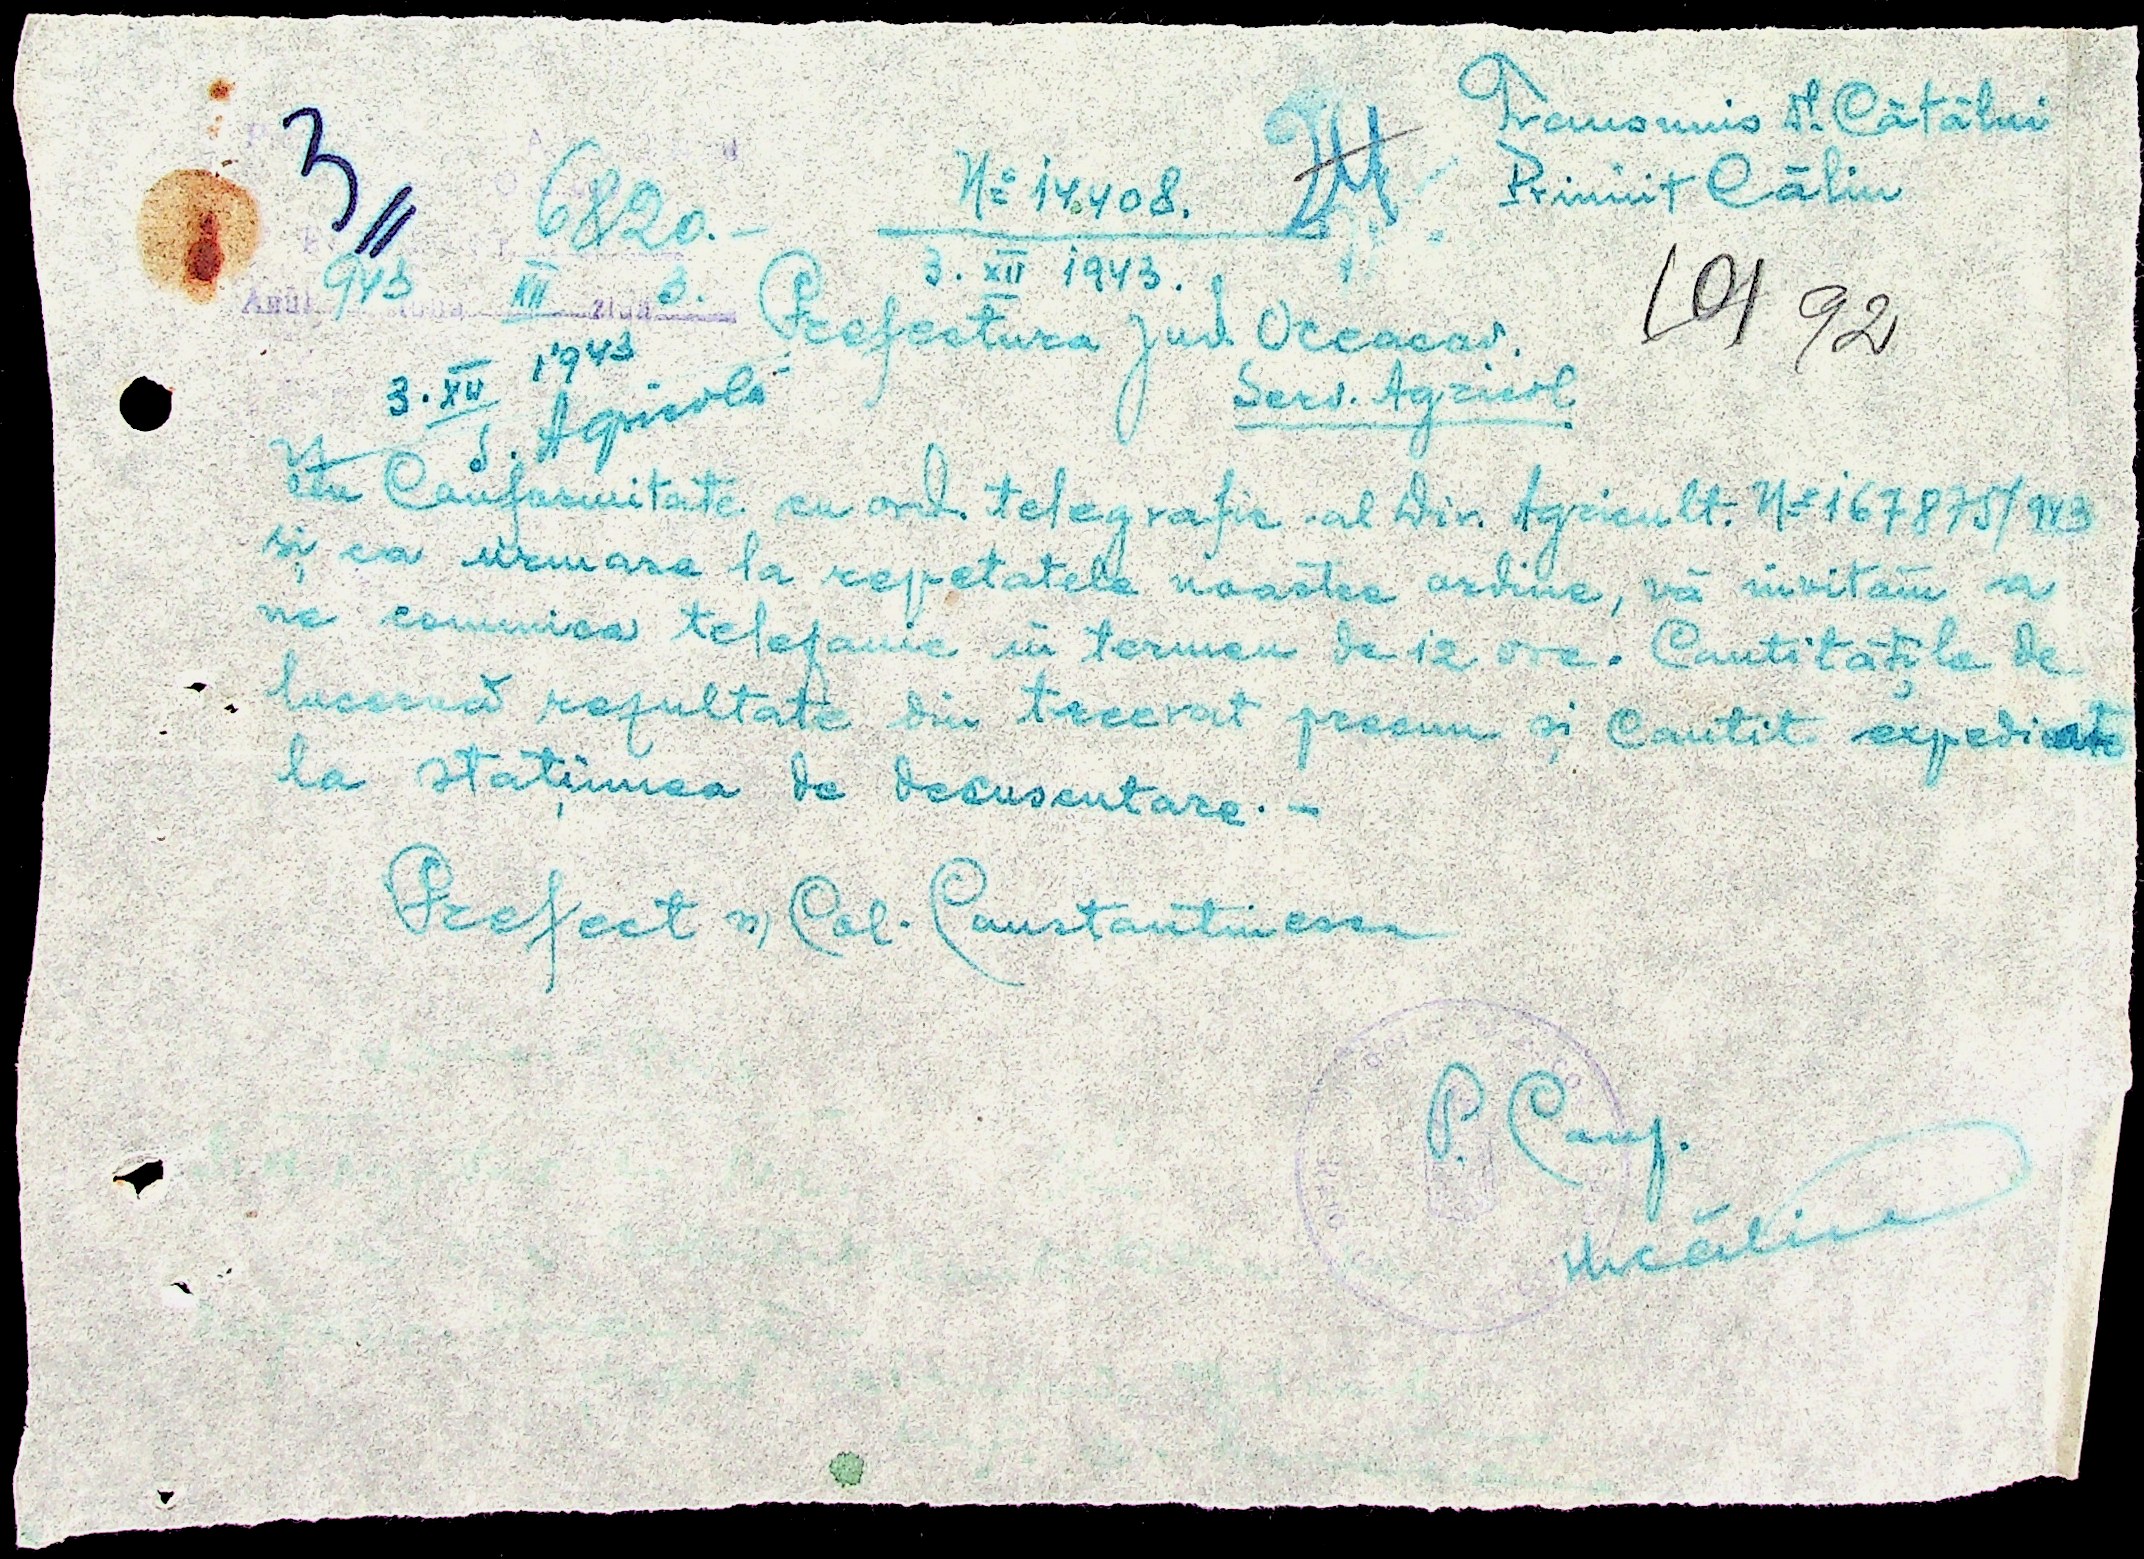 Transmis Cătălui
Primit Călin
3
6820.-
Nº 14.408.
3. XII 1943.
101 92
Anul 943 Luna XII Ziua 3.
Prefectura Jud.
Serv. Agricol
3. XII 1943
S. Agricolă
În Conformitate cu ord. telegrafic al Dir. Agricult. Nº 167875/943
și ca urmare la repetatele noastre ordine, vă invităm a
ne comunica telefonic în termen de 12 ore. Cantitățile de
lucernă rezultate din treerat precum și Cantit expediate
la stațiunea de decuscutare. -
Prefect ss) Col. Constantinescu
P. Conf.